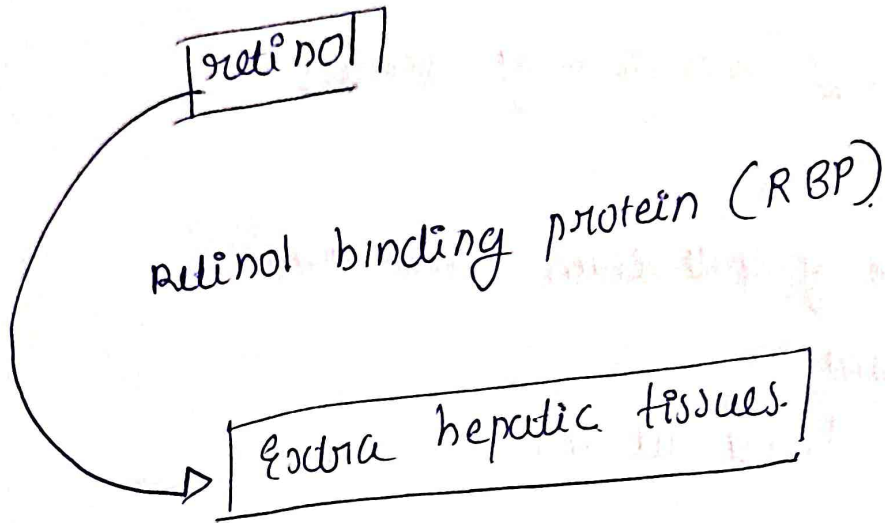 retinol
Retinol binding protein (RBP).
Extra hepatic tissues.